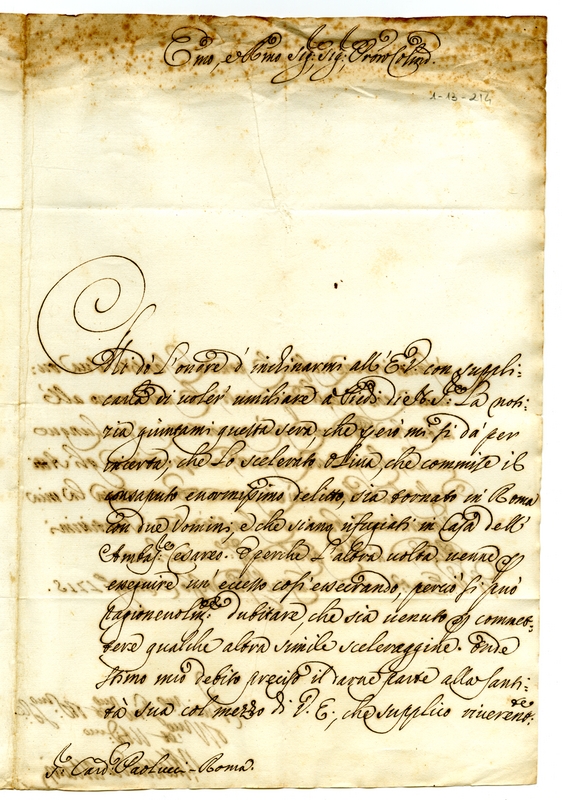 Emo, e Rmo Sig.r Sig.r Prone Colmo.
1-13-214
Mi dò l'onore d'inclinarmi all'E.V. con suppli:
carla di voler umiliare à Piedi di N. S.re La noti:
zia giuntami questa sera, che però mi si dà per
incerta, che Lo scelerato Oliva che commise il
consaputo enormissimo delitto, sia tornato in Roma
con due Uomini, e che siano rifugiati in Casa dell'
Ambas.r Cesareo. E perche L'altra volta venne p
eseguire un eccesso così essecrando, perciò si può
ragionevolm.te dubitare, che sia venuto p commet:
tere qualche altra simile sceleraggine. Onde
stimo mio debito preciso il darne parte alla Santi:
tà sua col mezzo di V. E., che supplico riverent.te
S.r Card. Paolucci - Roma.